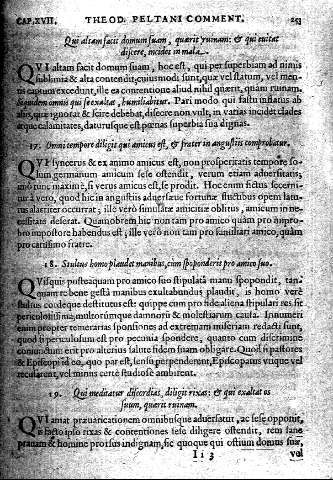 CAP. XVII. THEOD. PELTANI COMMENT. 253
Qui altam facit domum suam, quærit ruinam: & qui euitat
discere, incidet in mala.
QVI altam facit domum suam, hoc est, qui per superbiam ad nimis
sublimia & alta contendit, cuiusmodi sunt, quæ vel statum, vel men-
tis captum excedunt, ille ea contentione aliud nihil quærit, quàm ruinam.
omnis qui se exaltat, humiliabitur. Pari modo qui fastu inflatus ab
aliis, quæ ignorat & scire debebat, discere non vult, in varias incidet clades
atque calamitates, daturusque est pœnas superbia sua dignas.
17. Omni tempore diligit qui amicus est, & frater in angustiis comprobatur.
QVI syncerus & ex animo amicus est, non prosperitatis tempore so-
lùm germanum amicum sese ostendit, verum etiam aduersitatis;
imò tunc maximè, si verus amicus est, se prodit. Hoc enim fictus secerni-
tur à vero, quod hic in angustiis aduersæque fortunæ fluctibus opem la-
turus alacriter occurrat, ille verò simulatæ amicitiæ oblitus, amicum in ne-
cessitate deserat. Quamobrem hic non tam pro amico quàm pro
bro impostore habendus est, ille verò non tam pro familiari amico, quàm
pro carissimo fratre.
18. Stultus homo plaudet manibus, cùm spoponderit pro amico suo.
QVisquis posteaquam pro amico suo stipulata manu spopondit, tan-
quam re bene gesta manibus exultabundus plaudit, is homo verè
stultus cordeque destitutus est: quippe cum pro fide aliena stipulari res sit
periculosissima, multorumque damnorum & molestiarum causa. Innumeri
enim propter temerarias sponsiones ad extremam miseriam redacti sunt,
quòd si periculosum est pro pecunia spondere, quanto cum discrimine
coniunctum erit pro alterius salute fidem suam obligare. Quòd si pastores
& Episcopi id eo, quo par est, sensu perpenderent, Episcopatus vtique vel
recusarent, vel minùs certè studiosè ambirent.
19. Qui meditatur discordias, diligit rixas: & qui exaltat os
suum, quærit ruinam.
QVI amat præuaricationem omnibusque aduersatur, ac sese opponit,
is facto ipso rixas & contentiones sese diligere ostendit, rem sane
prauam & homine prorsus indignam, sic quoque qui ostium domus suæ,
I i 3 vel